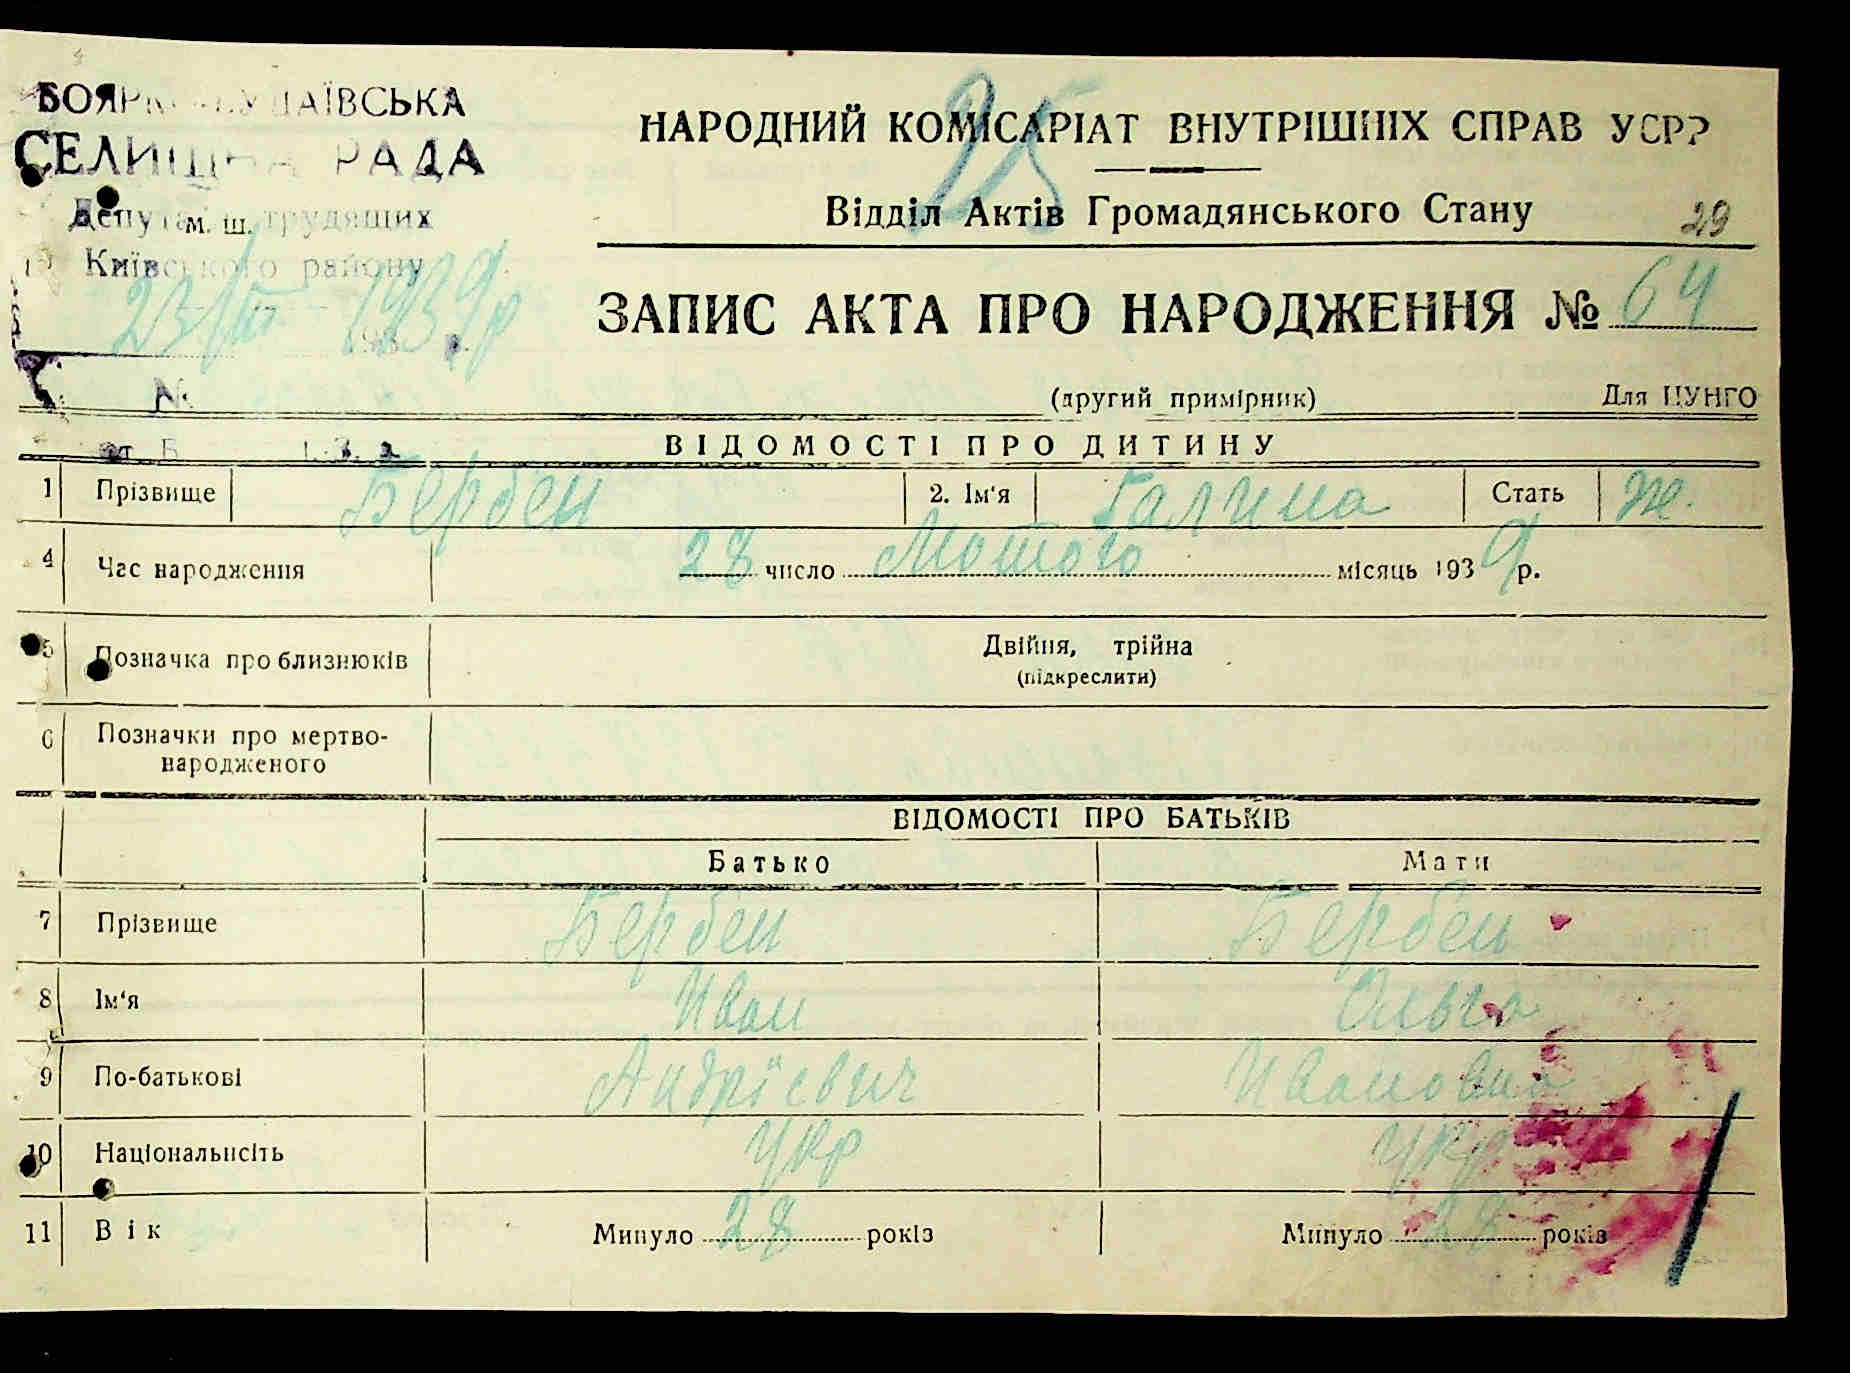 БОЯРКО-БУДАЇВСЬКА
СЕЛИЩНА РАДА
Депутатів трудящих
м. ш.
Київського району
23/III 1939р
193 р.
№
НАРОДНИЙ КОМІСАРІАТ ВНУТРІШНІХ СПРАВ УСРР
25
Відділ Актів Громадянського Стану
29
ЗАПИС АКТА ПРО НАРОДЖЕННЯ № 64
(другий примірник) Для ЦУНГО
ВІДОМОСТІ ПРО ДИТИНУ
1 Прізвище Бербен 2. Ім'я Галина Стать Ж.
4 Час народження 28 число Лютого місяць 1939 р.
5 Позначка про близнюків Двійня, трійна
(підкреслити)
6 Позначки про мертво-
народженого
ВІДОМОСТІ ПРО БАТЬКІВ
Батько Мати
7 Прізвище Бербен Бербен
8 Ім'я Иван Ольга
9 По-батькові Андрієвич Ивановна
10 Національність укр укр
11 Вік Минуло 28 років Минуло 28 років